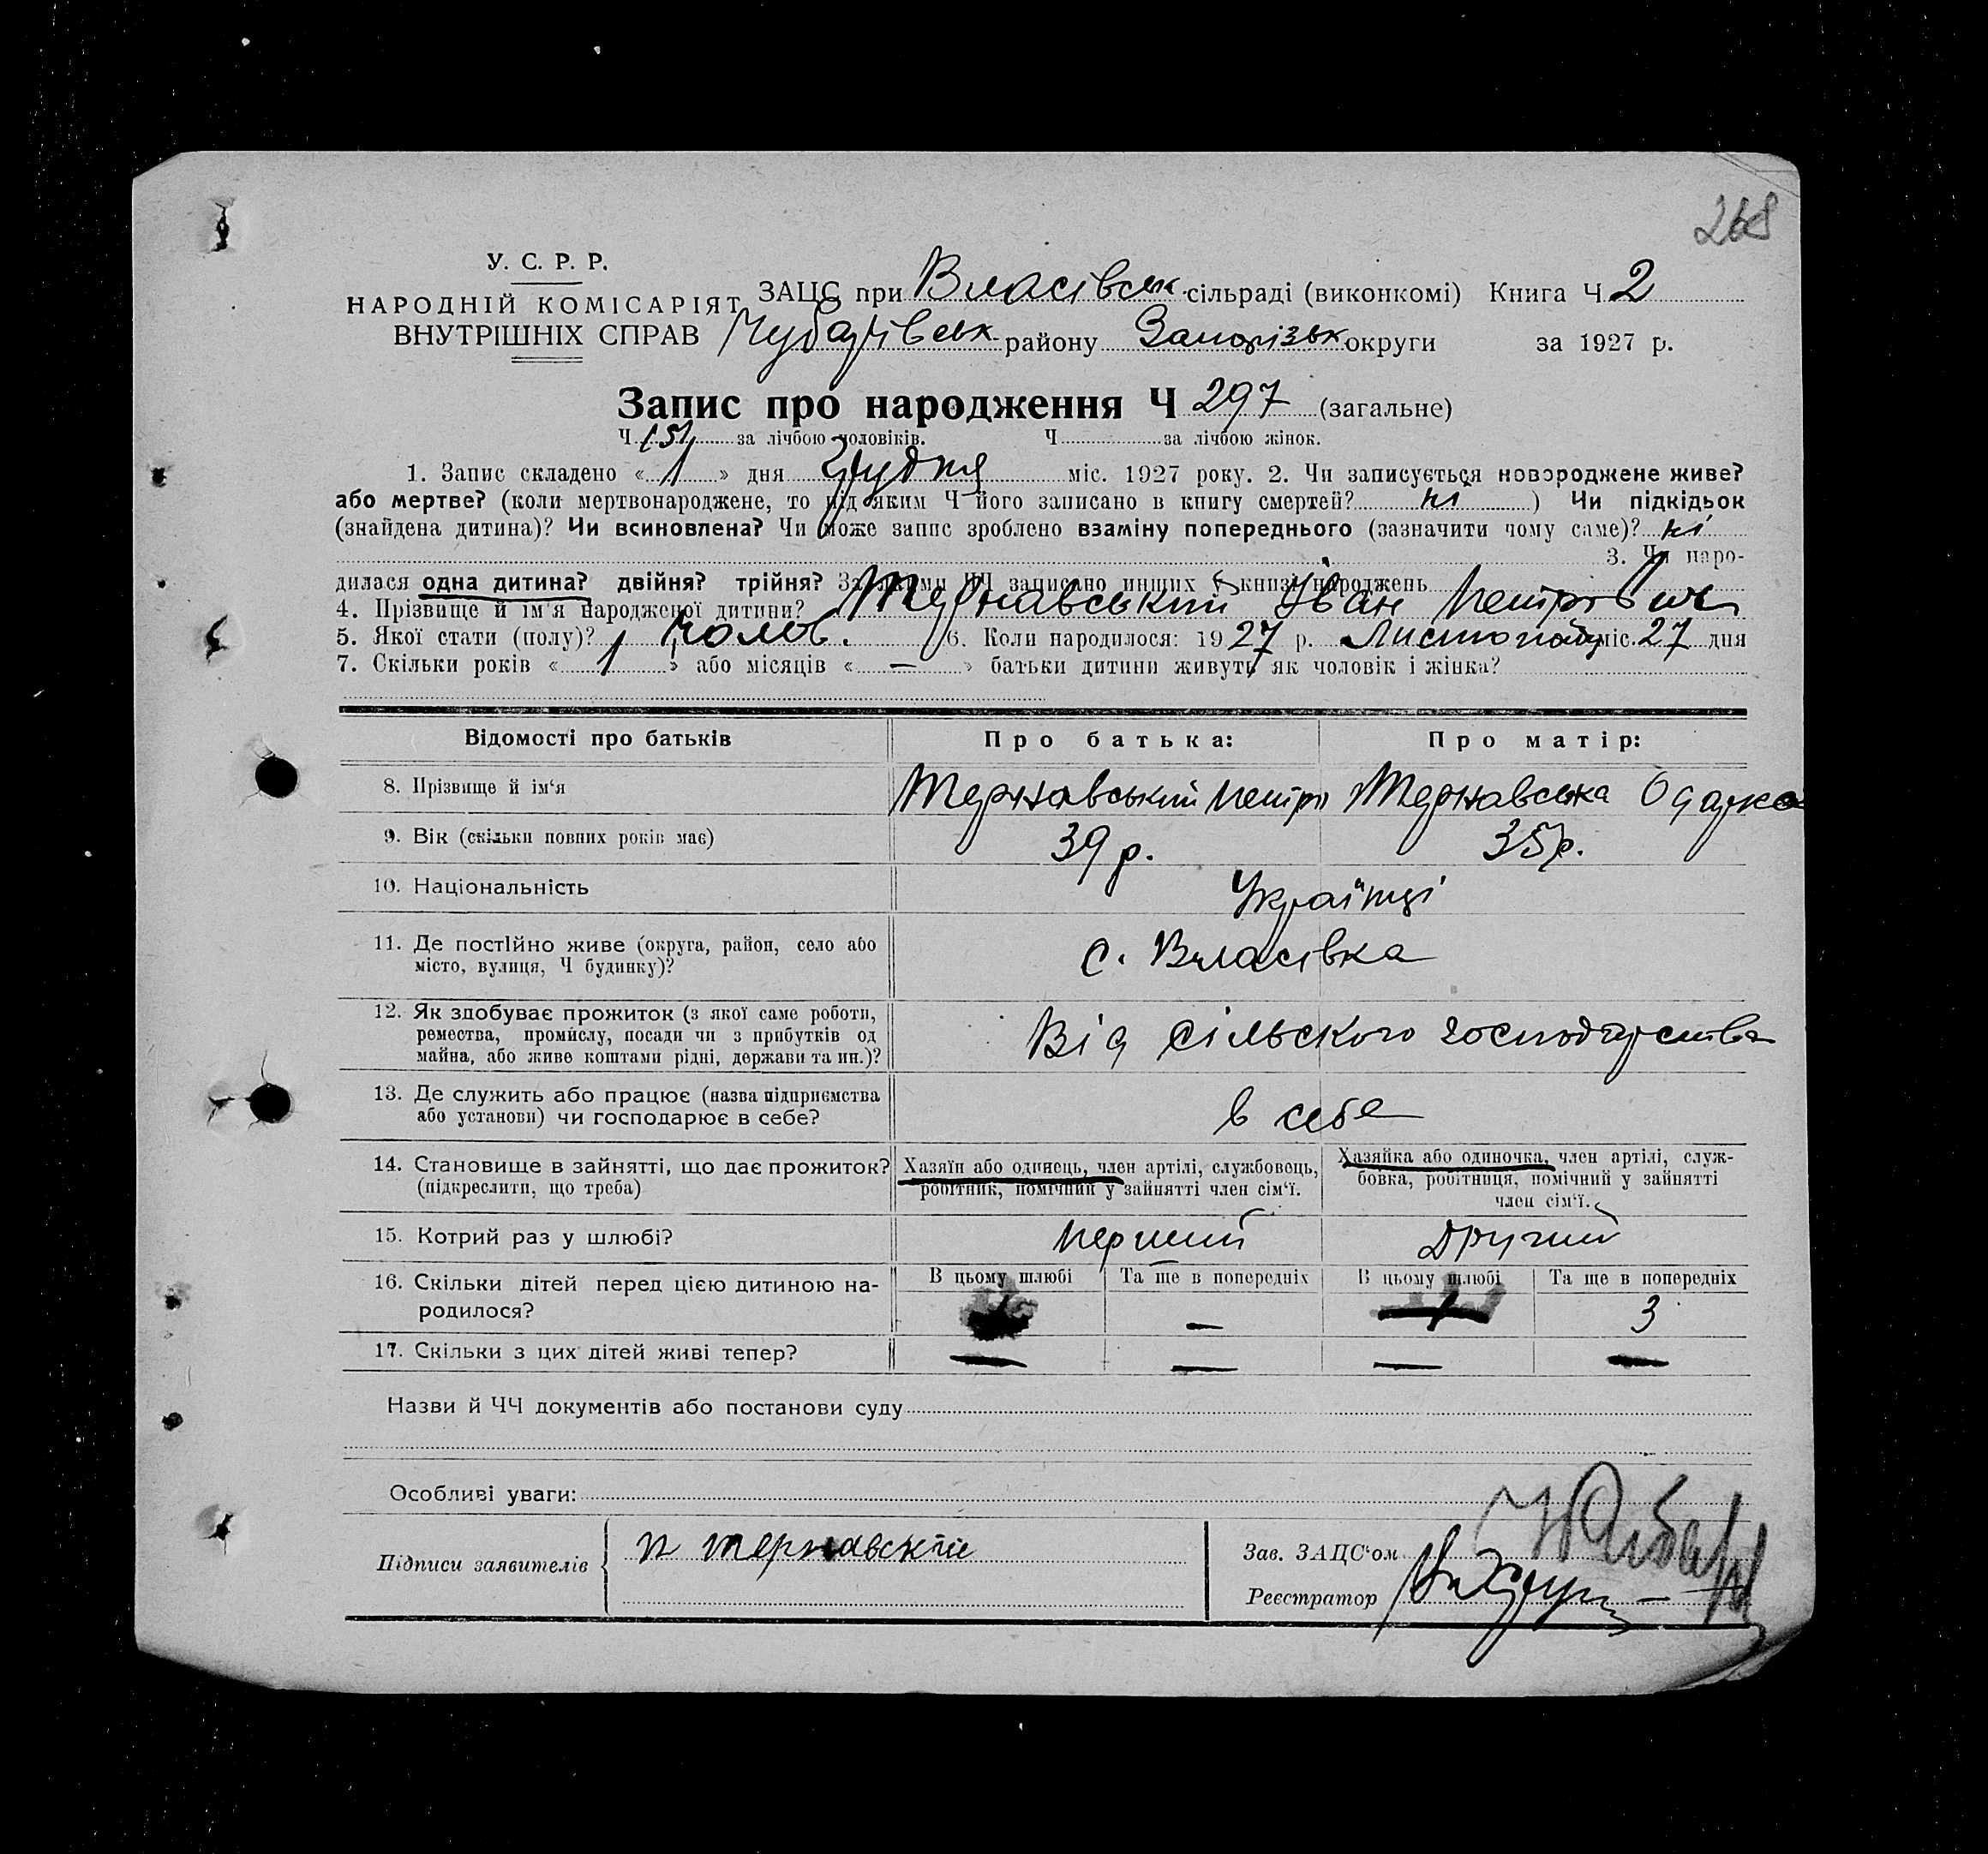 268
У. С. Р. Р.
НАРОДНІЙ КОМІСАРІЯТ
ВНУТРІШНІХ СПРАВ
ЗАЦС при Власівськ. сільраді (виконкомі) Книга Ч 2
Чубарівськ. району Запорізьк округи за 1927 р.
Запис про народження Ч 297 (загальне)
Ч 151 за лічбою чоловіків. Ч за лічбою жінок.
1. Запис складено « 1 » дня Грудня міс. 1927 року. 2. Чи записується новороджене живе?
або мертве? (коли мертвонароджене, то під яким Ч його записано в книгу смертей? ні ) Чи підкідьок
(знайдена дитина)? Чи всиновлена? Чи може запис зроблено взаміну попереднього (зазначити чому саме)? ні
3. Чи наро-
дилася одна дитина? двійня? трійня? За якими ЧЧ записано инших в книзі народжень
4. Прізвище й ім'я народженої дитини? Тернавський Іван Петрович
5. Якої стати (полу)? Чолов. 6. Коли народилося: 1927 р. Листопаду міс. 27 дня
7. Скільки років « 1 » або місяців « — » батьки дитини живуть як чоловік і жінка?
Відомості про батьків Про батька: Про матір:
8. Прізвище й ім'я Тернавський Петро Тернавська Одарка
9. Вік (скільки повних років має) 39 р. 35 р.
10. Національність Українці
11. Де постійно живе (округа, район, село або
місто, вулиця, Ч будинку)? с. Власівка
12. Як здобуває прожиток (з якої саме роботи,
ремества, промислу, посади чи з прибутків од
майна, або живе коштами рідні, держави та ин.)? Від сільского господарства
13. Де служить або працює (назва підприємства
або установи) чи господарює в себе? в себе
14. Становище в зайнятті, що дає прожиток?
(підкреслити, що треба)
Хазяїн або одинець, член артілі, службовець,
робітник, помічний у зайнятті член сім'ї.
Хазяйка або одиночка, член артілі, служ-
бовка, робітниця, помічний у зайнятті
член сім'ї.
15. Котрий раз у шлюбі? перший другий
16. Скільки дітей перед цією дитиною на-
родилося?
В цьому шлюбі Та ще в попередніх В цьому шлюбі Та ще в попередніх
— 3
17. Скільки з цих дітей живі тепер? — — — —
Назви й ЧЧ документів або постанови суду
Особливі уваги:
Підписи заявителів п тернавскій
Зав. ЗАЦС'ом
Реєстратор